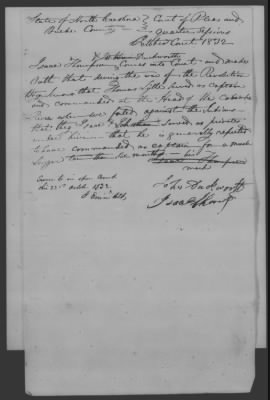 State of North Carolina } Court of Pleas and
Burke County } Quarter Sessions
October Court 1832
& John Duckworth
Isaac Thompson Comes into Court and makes
Oath that during the war of the Revolution
they knew that Thomas Lytle served as captain
and commanded at the Head of the Catawba
River when we forted against the Indians
that they Isaac & John served as privates
under him that he is generally reputed
to have commanded as captain for a much
longer than six months his
Isaac Thompson
mark
Sworn to in open Court
the 22nd Octob. 1832
John Duckworth